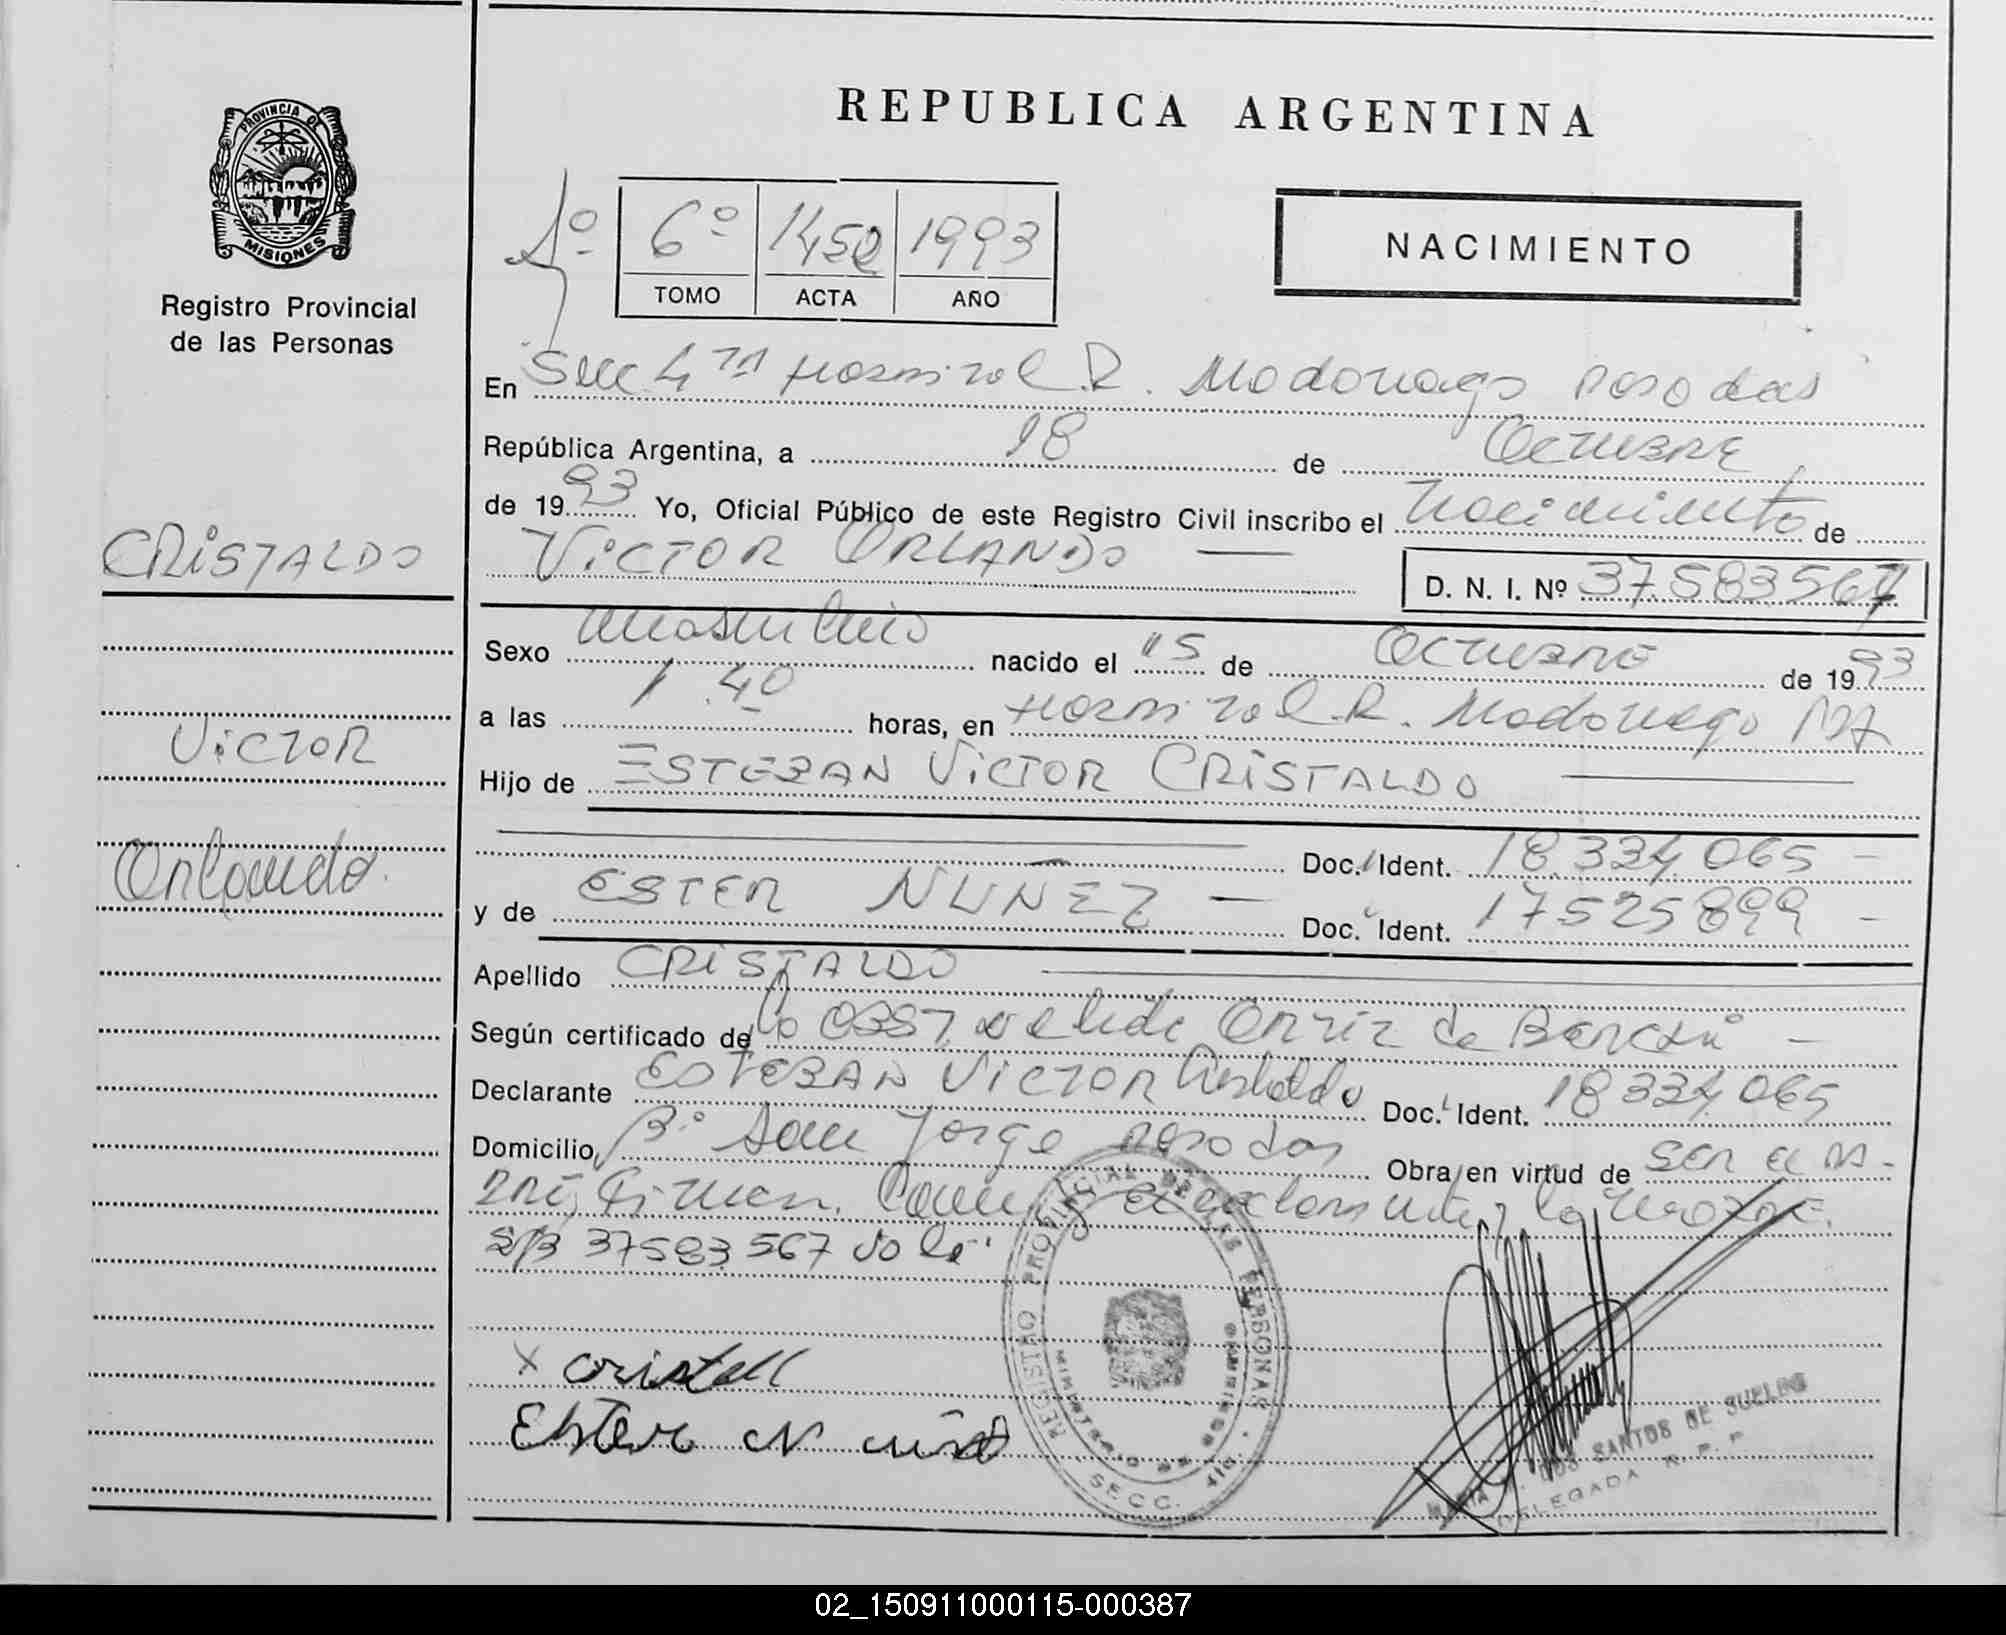 PROVINCIA DE
MISIONES
Registro Provincial
de las Personas
CRISTALDO
VICTOR
Orlando.
REPUBLICA ARGENTINA
6º 1452 1993
TOMO ACTA AÑO
NACIMIENTO
En Secc 4ta Hospital R. Madariaga Posadas
República Argentina, a 18 de Octubre
de 1993 Yo, Oficial Público de este Registro Civil inscribo el Nacimiento de
VICTOR ORLANDO
D. N. I. Nº 37.583.567
Sexo Masculino nacido el 15 de Octubre de 1993
a las 1.40 horas, en Hospital R. Madariaga
Hijo de ESTEBAN VICTOR CRISTALDO
Doc. Ident. 18.334.065
y de ESTER NUÑEZ Doc. Ident. 17525899
Apellido CRISTALDO
Según certificado de la Obst. Ortiz de
Declarante ESTEBAN VICTOR Cristaldo Doc. Ident. 18 334 065
Domicilio Bº San Jorge Posadas Obra en virtud de ser el pa-
dre, Firman. declarante y la madre.
S/B 37583.567 Vale
x Cristall
Ester N
REGISTRO PROVINCIAL DE LAS PERSONAS
MINISTERIO DE GOBIERNO
SECC.
MARIA DOS SANTOS DE SUELDO
DELEGADA R. P. P.
02_150911000115-000387